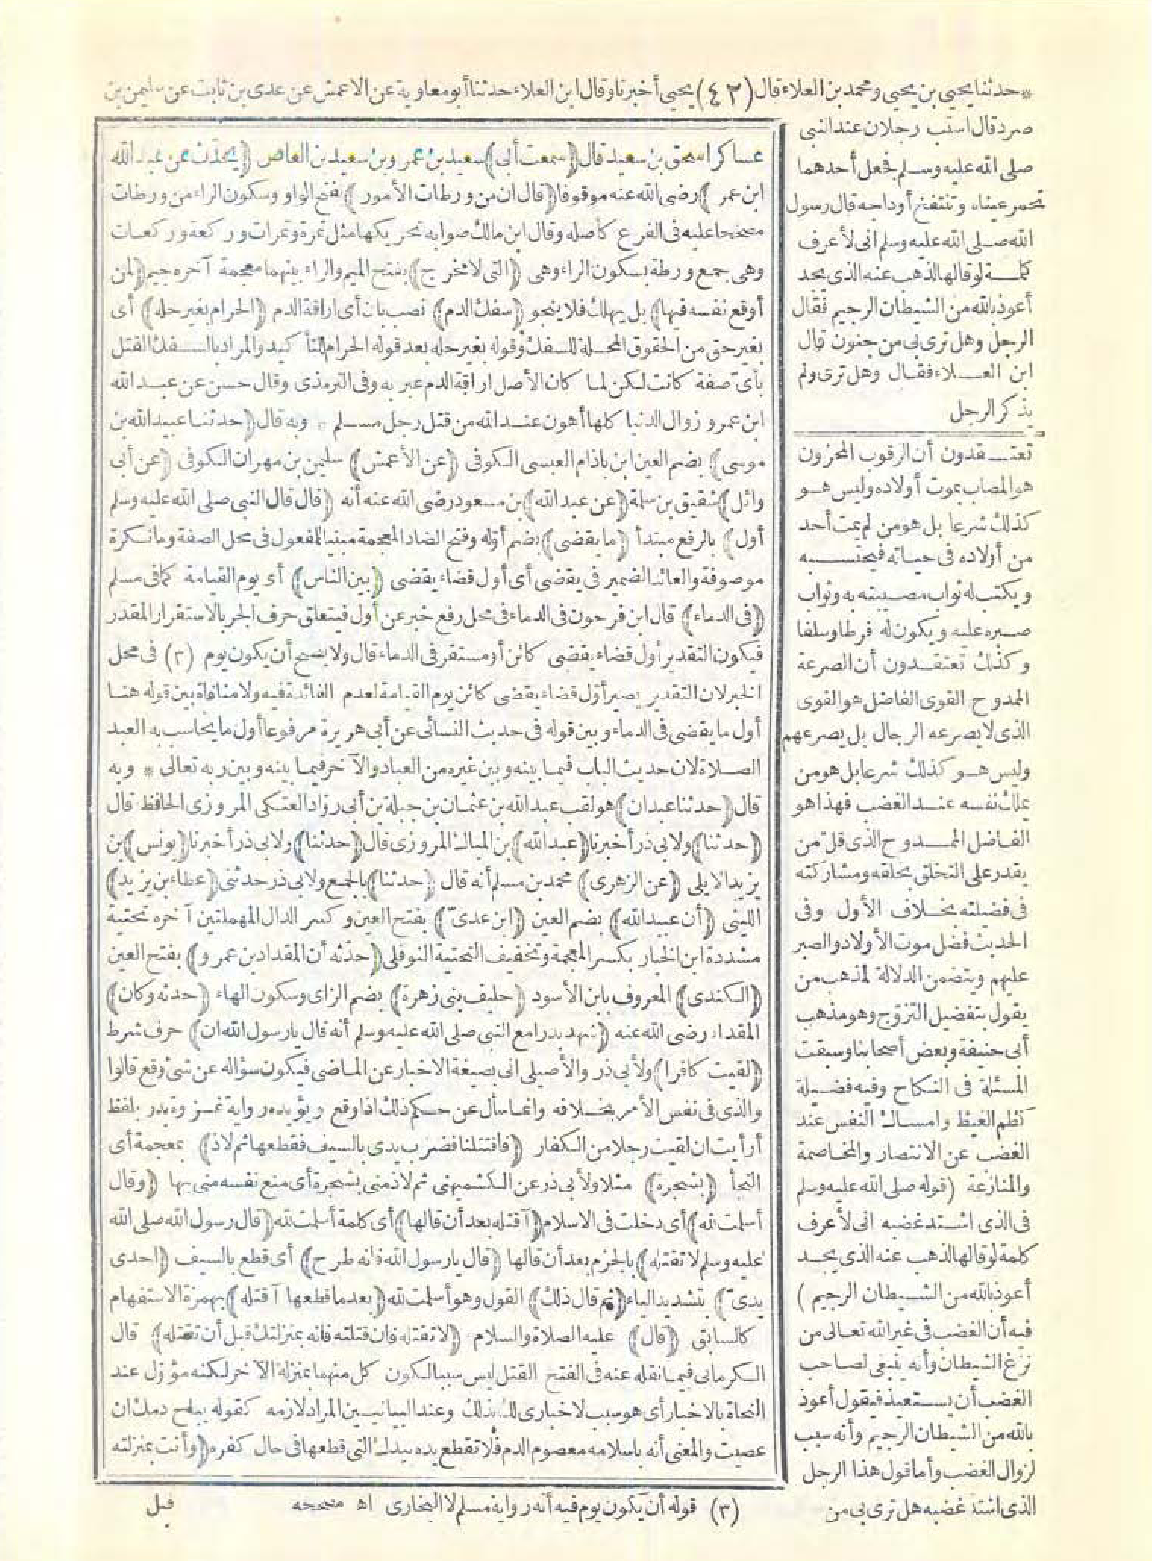 * حدثنا يحيى بن يحيى ومحمد بن العلاء قال (٤٢) يحيى أخبرنا وقال ابن العلاء حدثنا أبو معاوية عن الاعمش عن عدى بن ثابت عن سليمن بن
صرد قال استب رجلان عند النبى
صلى الله عليه وسلم فجعل أحدهما
تحمر عيناه وتنتفخ أوداجه قال رسول
الله صلى الله عليه وسلم انى لأعرف
كلمة لو قالها لذهب عنه الذى يجد
أعوذ بالله من الشيطان الرجيم فقال
الرجل وهل ترى بى من جنون قال
ابن العلاء فقال وهل ترى ولم
يذكر الرجل
تعتقدون أن الرقوب المحزون
هو المصاب بموت أولاده وليس هو
كذلك شرعا بل هو من لم يمت أحد
من أولاده فى حياته فيحتسبه
ويكتب له ثواب مصيبته به وثواب
صبره عليه ويكون له فرطا وسلفا
وكذلك تعتقدون أن الصرعة
الممدوح القوى الفاضل هو القوى
الذى لا يصرعه الرجال بل يصرعهم
وليس هو كذلك شرعا بل هو من
يملك نفسه عند الغضب فهذا هو
الفاضل الممدوح الذى قل من
يقدر على التخلق بخلقه ومشاركته
فى فضيلته بخلاف الأول وفى
الحديث فضل موت الأولاد والصبر
عليهم ويتضمن الدلالة لمذهب من
يقول بتفضيل التزوج وهو مذهب
أبى حنيفة وبعض أصحابنا وسبقت
المسئلة فى النكاح وفيه فضيلة
كظم الغيظ وامساك النفس عند
الغضب عن الانتصار والمخاصمة
والمنازعة (قوله صلى الله عليه وسلم
فى الذى اشتد غضبه انى لأعرف
كلمة لو قالها لذهب عنه الذى يجد
أعوذ بالله من الشيطان الرجيم)
فيه أن الغضب فى غير الله تعالى من
نزغ الشيطان وأنه ينبغى لصاحب
الغضب أن يستعيذ فيقول أعوذ
بالله من الشيطان الرجيم وأنه سبب
لزوال الغضب وأما قول هذا الرجل
الذى اشتد غضبه هل ترى بى من
عساكر اسحق بن سعيد قال (سمعت أبى) سعيد بن عمرو بن سعيد بن العاص (يحدث عن عبد الله
ابن عمر) رضى الله عنه موقوفا (قال ان من ورطات الأمور) بفتح الواو وسكون الراء من ورطات
مصححا عليه فى الفرع كأصله وقال ابن مالك صوابه تحريكها مثل تمرة وتمرات وركعة وركعات
وهى جمع ورطة بسكون الراء وهى (التى لا مخرج) بفتح الميم والراء بينهما معجمة آخره جيم (لمن
أوقع نفسه فيها) بل يهلك فلا ينجو (سفك الدم) نصب بان أى اراقة الدم (الحرام بغير حله) أى
بغير حق من الحقوق المحلة للسفك وقوله بغير حله بعد قوله الحرام للتأكيد والمراد بالسفك القتل
بأى صفة كانت لكن لما كان الأصل اراقة الدم عبر به وفى الترمذى وقال حسن عن عبد الله
ابن عمرو زوال الدنيا كلها أهون عند الله من قتل رجل مسلم * وبه قال (حدثنا عبيد الله بن
موسى) بضم العين ابن باذام العبسى الكوفى (عن الأعمش) سليمن بن مهران الكوفى (عن أبى
وائل) شقيق بن سلمة (عن عبد الله) بن مسعود رضى الله عنه أنه (قال قال النبى صلى الله عليه وسلم
أول) بالرفع مبتدأ (ما يقضى) بضم أوله وفتح الضاد المعجمة مبنيا للمفعول فى محل الصفة وما نكرة
موصوفة والعائد الضمير فى يقضى أى أول قضاء يقضى (بين الناس) أى يوم القيامة كما فى مسلم
(فى الدماء) قال ابن فرحون فى الدماء فى محل رفع خبر عن أول فيتعلق حرف الجر بالاستقرار المقدر
فيكون التقدير أول قضاء يقضى كائن أو مستقر فى الدماء قال ولا يصح أن يكون يوم (٣) فى محل
الخبر لان التقدير يصير أول قضاء يقضى كائن يوم القيامة لعدم الفائدة فيه ولا منافاة بين قوله هنا
أول ما يقضى فى الدماء وبين قوله فى حديث النسائى عن أبى هريرة مرفوعا أول ما يحاسب به العبد
الصلاة لان حديث الباب فيما بينه وبين غيره من العباد والآخر فيما بينه وبين ربه تعالى * وبه
قال (حدثنا عبدان) هو لقب عبد الله بن عثمان بن جبلة بن أبى رواد العتكى المروزى الحافظ قال
(حدثنا) ولابى ذر أخبرنا (عبد الله) بن المبارك المروزى قال (حدثنا) ولابى ذر أخبرنا (يونس) بن
يزيد الايلى (عن الزهرى) محمد بن مسلم أنه قال (حدثنا) بالجمع ولابى ذر حدثنى (عطاء بن يزيد)
الليثى (أن عبيد الله) بضم العين (ابن عدى) بفتح العين وكسر الدال المهملتين آخره تحتية
مشددة ابن الخيار بكسر المعجمة وتخفيف التحتية النوفلى (حدثه أن المقداد بن عمرو) بفتح العين
(الكندى) المعروف بابن الأسود (حليف بنى زهرة) بضم الزاى وسكون الهاء (حدثه وكان)
المقداد رضى الله عنه (شهد بدرا مع النبى صلى الله عليه وسلم أنه قال يا رسول الله ان) حرف شرط
(لقيت كافرا) ولأبى ذر والأصيلى انى بصيغة الاخبار عن الماضى فيكون سؤاله عن شئ وقع قالوا
والذى فى نفس الأمر بخلافه وانما سأل عن حكم ذلك اذا وقع ويؤيده رواية غزوة بدر بلفظ
أرأيت ان لقيت رجلا من الكفار (فاقتتلنا فضرب يدى بالسيف فقطعها ثم لاذ) بمعجمة أى
التجأ (بشجرة) مثلا ولأبى ذر عن الكشميهنى ثم لاذ منى بشجرة أى منع نفسه منى بها (وقال
أسلمت لله) أى دخلت فى الاسلام (آقتله بعد أن قالها) أى كلمة أسلمت لله (قال رسول الله صلى الله
عليه وسلم لا تقتله) بالجزم بعد أن قالها (قال يا رسول الله فانه طرح) أى قطع بالسيف (احدى
يدى) بتشديد الياء (ثم قال ذلك) القول وهو أسلمت لله (بعد ما قطعها آقتله) بهمزة الاستفهام
كالسابق (قال) عليه الصلاة والسلام (لا تقتله فان قتلته فانه بمنزلتك قبل أن تقتله) قال
الكرمانى فيما نقله عنه فى الفتح القتل ليس سببا لكون كل منهما بمنزلة الآخر لكنه مؤول عند
النحاة بالاخبار أى هو سبب لاخبارى لك بذلك وعند البيانيين المراد لازمه كقوله يباح دمك ان
عصيت والمعنى أنه باسلامه معصوم الدم فلا تقطع يده بيدك التى قطعها فى حال كفره (وأنت بمنزلته
(٣) قوله أن يكون يوم فيه أنه رواية مسلم لا البخارى اه مصححه
قبل